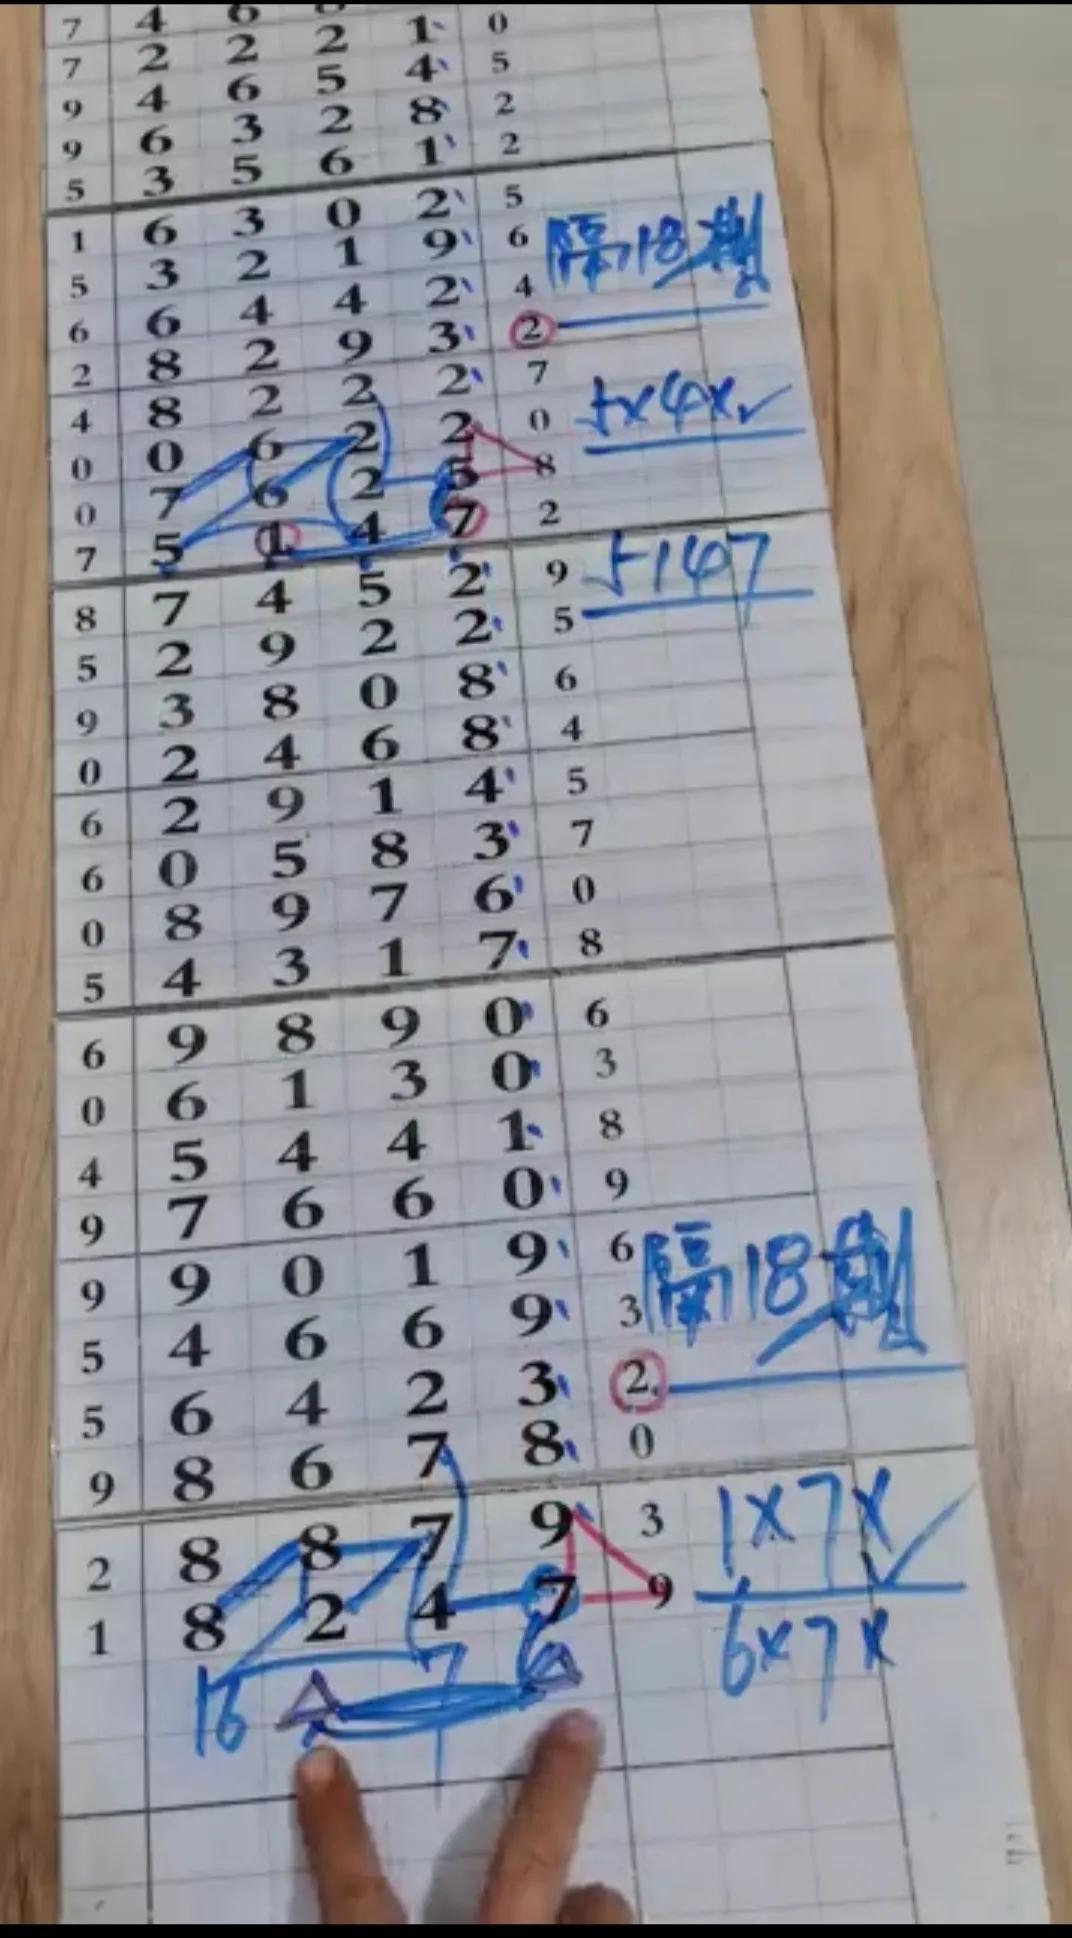 7 4 6 1 0
7 2 2 2 4 5
9 4 6 5 8 2
9 6 3 2 1 2
5 3 5 6
1 6 3 0 2 5 隔18期
5 3 2 1 9 6
6 6 4 4 2 4
2 8 2 9 3 2
4 8 2 2 2 7 5x4x✓
0 0 6 2 2 0
0 7 6 2 5 8
7 5 1 4 7 2
8 7 4 5 2 9 5147
5 2 9 2 2 5
9 3 8 0 8 6
0 2 4 6 8 4
6 2 9 1 4 5
6 0 5 8 3 7
0 8 9 7 6 0
5 4 3 1 7 8
6 9 8 9 0 6
0 6 1 3 0 3
4 5 4 4 1 8
9 7 6 6 0 9
9 9 0 1 9 6 隔18期
5 4 6 6 9 3
5 6 4 2 3 2
9 8 6 7 8 0
2 8 8 7 9 3 1x7x✓
1 8 2 4 7 9 6x7x
16 7